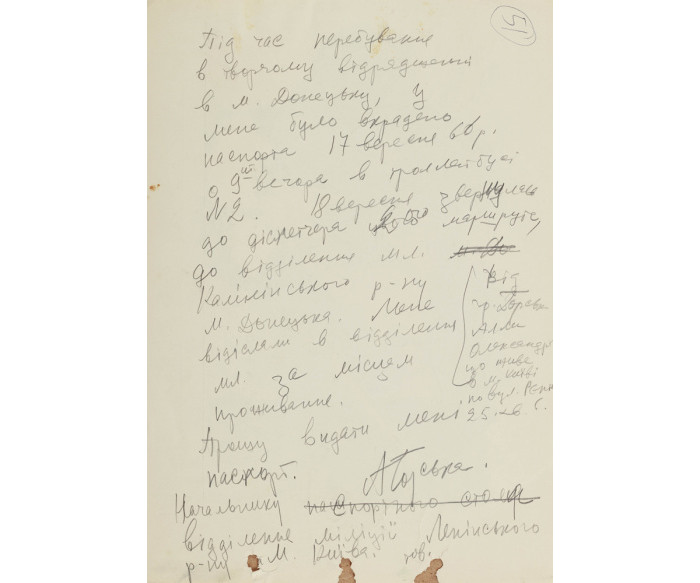 51
Під час перебування
в творчому відрядженні
в м. Донецьку, у
мене було вкрадено
паспорта 17 вересня 66 р.
о 9ій вечора в тролейбусі
N2. 18 вересня звернулась
до діспетчера маршруту,
до відділення мл.
Калінінського р-ну
м. Донецька. Мене
відіслали в відділення
мл. за місцем
проживання.
Прошу видати мені
паспорт.
АГорська.
Від
гр. Горська
Алли
Олександр
що живе
в м. Києві
по вул. Рєпін
25 кв. 6.
Начальнику паспортного стола
відділення міліції Ленінського
р-ну м. Києва. тов.